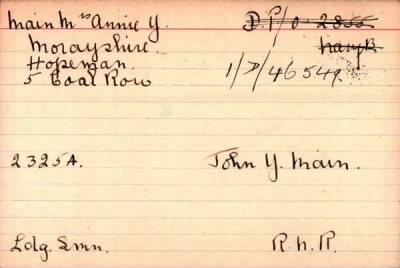 Main Mrs Annie Y. D.P/o 2855
Morayshire Navy B
Hopeman 1/D/46549.
5 Coal Row
2325A. John Y. Main.
Ldg. Smn. R.N.R.